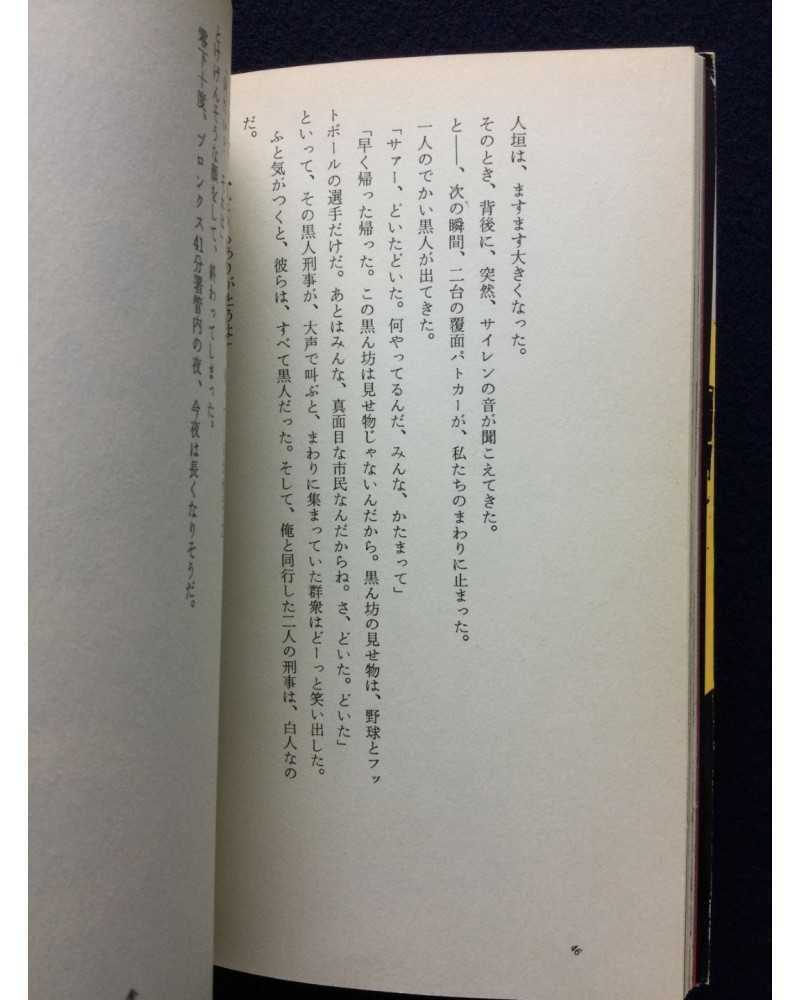 人垣は、ますます大きくなった。
そのとき、背後に、突然、サイレンの音が聞こえてきた。
と――、次の瞬間、二台の覆面パトカーが、私たちのまわりに止まった。
一人のでかい黒人が出てきた。
「サァー、どいたどいた。何やってるんだ、みんな、かたまって」
「早く帰った帰った。この黒ん坊は見せ物じゃないんだから。黒ん坊の見せ物は、野球とフッ
トボールの選手だけだ。あとはみんな、真面目な市民なんだからね。さ、どいた。どいた」
といって、その黒人刑事が、大声で叫ぶと、まわりに集まっていた群衆はどーっと笑い出した。
ふと気がつくと、彼らは、すべて黒人だった。そして、俺と同行した二人の刑事は、白人なの
だ。
とけげんそうな顔をして、終わってしまった。
零下十度、ブロンクス41分署管内の夜、今夜は長くなりそうだ。